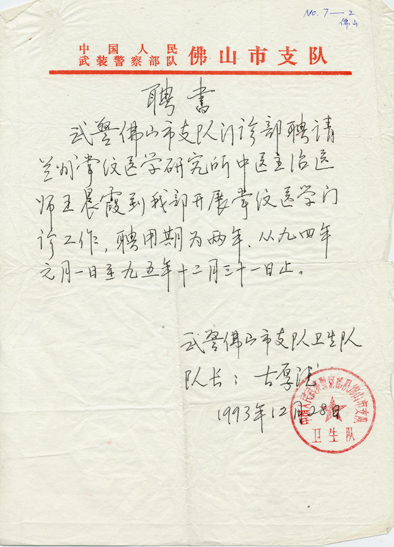 No. 7—2
佛山
中国人民
武装警察部队 佛山市支队
聘书
武警佛山市支队门诊部聘请
兰州掌纹医学研究所中医主治医
师王晨霞到我部开展掌纹医学门
诊工作，聘用期为两年，从九四年
元月一日至九五年十二月三十一日止。
武警佛山市支队卫生队
队长：古厚
1993年12月28日
卫生队